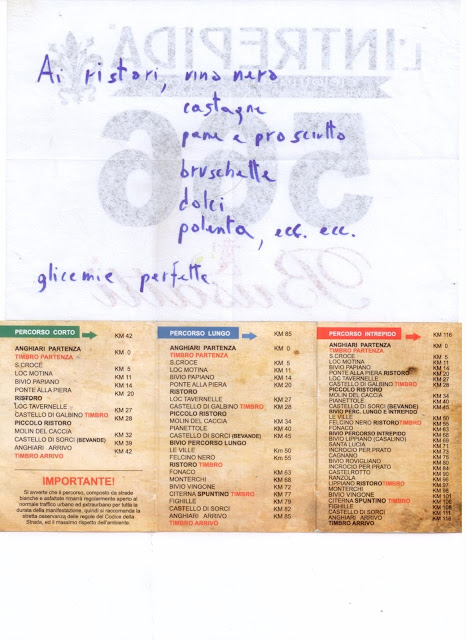 L'INTREPIDA
Ai ristori, vino nero
castagne
pane e prosciutto
bruschette
dolci
polenta, ecc. ecc.
glicemie perfette
PERCORSO CORTO KM 42
ANGHIARI PARTENZA KM 0
TIMBRO PARTENZA
S.CROCE KM 5
LOC MOTINA KM 11
BIVIO PAPIANO KM 14
PONTE ALLA PIERA KM 20
RISTORO
LOC TAVERNELLE KM 27
CASTELLO DI GALBINO TIMBRO KM 28
PICCOLO RISTORO
MOLIN DEL CACCIA KM 32
CASTELLO DI SORCI (BEVANDE) KM 39
ANGHIARI ARRIVO KM 42
TIMBRO ARRIVO
IMPORTANTE!
Si avverte che il percorso, composto da strade
bianche e asfaltate rimarrà regolarmente aperto al
normale traffico urbano ed extraurbano per tutta la
durata della manifestazione, quindi si raccomanda la
stretta osservanza delle regole del Codice della
Strada, ed il massimo rispetto dell'ambiente.
PERCORSO LUNGO KM 85
ANGHIARI PARTENZA KM 0
TIMBRO PARTENZA
S.CROCE KM 5
LOC MOTINA KM 11
BIVIO PAPIANO KM 14
PONTE ALLA PIERA KM 20
RISTORO
LOC TAVERNELLE KM 27
CASTELLO DI GALBINO TIMBRO KM 28
PICCOLO RISTORO
MOLIN DEL CACCIA KM 34
PIANETTOLE KM 40
CASTELLO DI SORCI (BEVANDE) KM 45
BIVIO PERCORSO LUNGO
LE VILLE Km 50
FELCINO NERO Km 55
RISTORO TIMBRO
FONACO KM 63
MONTERCHI KM 68
BIVIO VINGONE KM 72
CITERNA SPUNTINO TIMBRO KM 77
FIGHILLE KM 79
CASTELLO DI SORCI KM 82
ANGHIARI ARRIVO KM 85
TIMBRO ARRIVO
PERCORSO INTREPIDO KM 116
ANGHIARI PARTENZA KM 0
TIMBRO PARTENZA
S.CROCE KM 5
LOC MOTINA KM 11
BIVIO PAPIANO KM 14
PONTE ALLA PIERA RISTORO KM 20
LOC TAVERNELLE KM 27
CASTELLO DI GALBINO TIMBRO KM 28
PICCOLO RISTORO
MOLIN DEL CACCIA KM 34
PIANETTOLE
CASTELLO DI SORCI (BEVANDE) KM 45
BIVIO PERC. LUNGO E INTREPIDO
LE VILLE
FELCINO NERO RISTORO TIMBRO
FONACO
BIVIO PERCORSO INTREPIDO
BIVIO LIPPIANO (CASALINO)
SANTA LUCIA
INCROCIO PER PRATO
CAGNANO
BIVIO ROVIGLIANO
INCROCIO PER PRATO
CASTELROTTO
RANZOLA
LIPPIANO RISTORO TIMBRO
MONTERCHI
BIVIO VINGONE KM 101
CITERNA SPUNTINO TIMBRO KM 106
FIGHILLE KM 108
CASTELLO DI SORCI KM 111
ANGHIARI ARRIVO KM 116
TIMBRO ARRIVO